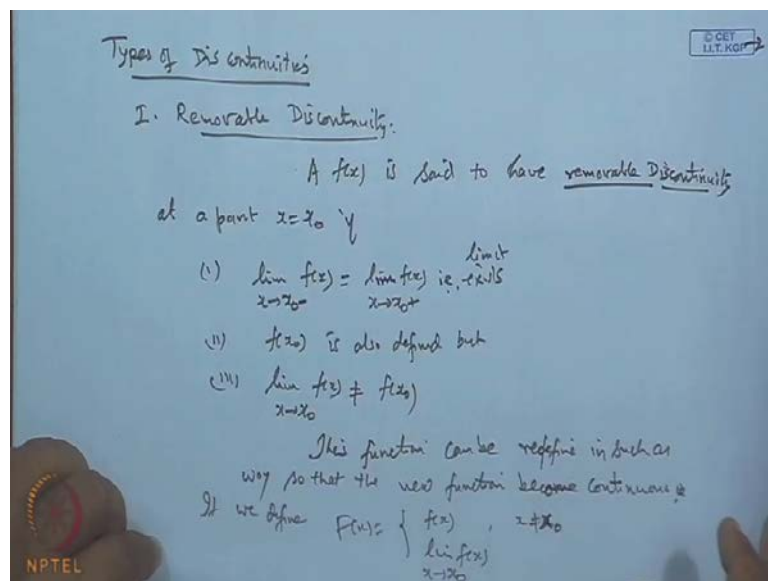 Types of Discontinuities
© CET
I.I.T. KGP
I. Removable Discontinuity.
A f(x) is said to have removable Discontinuity
at a point x = x₀ if
(i) lim f(x) = lim f(x) ie, limit exists
x→x₀- x→x₀+
(ii) f(x₀) is also defined but
(iii) lim f(x) ≠ f(x₀)
x→x₀
This function can be redefine in such a
way so that the new function become continuous
If we define F(x) = { f(x) , x ≠ x₀
lim f(x)
x→x₀
NPTEL